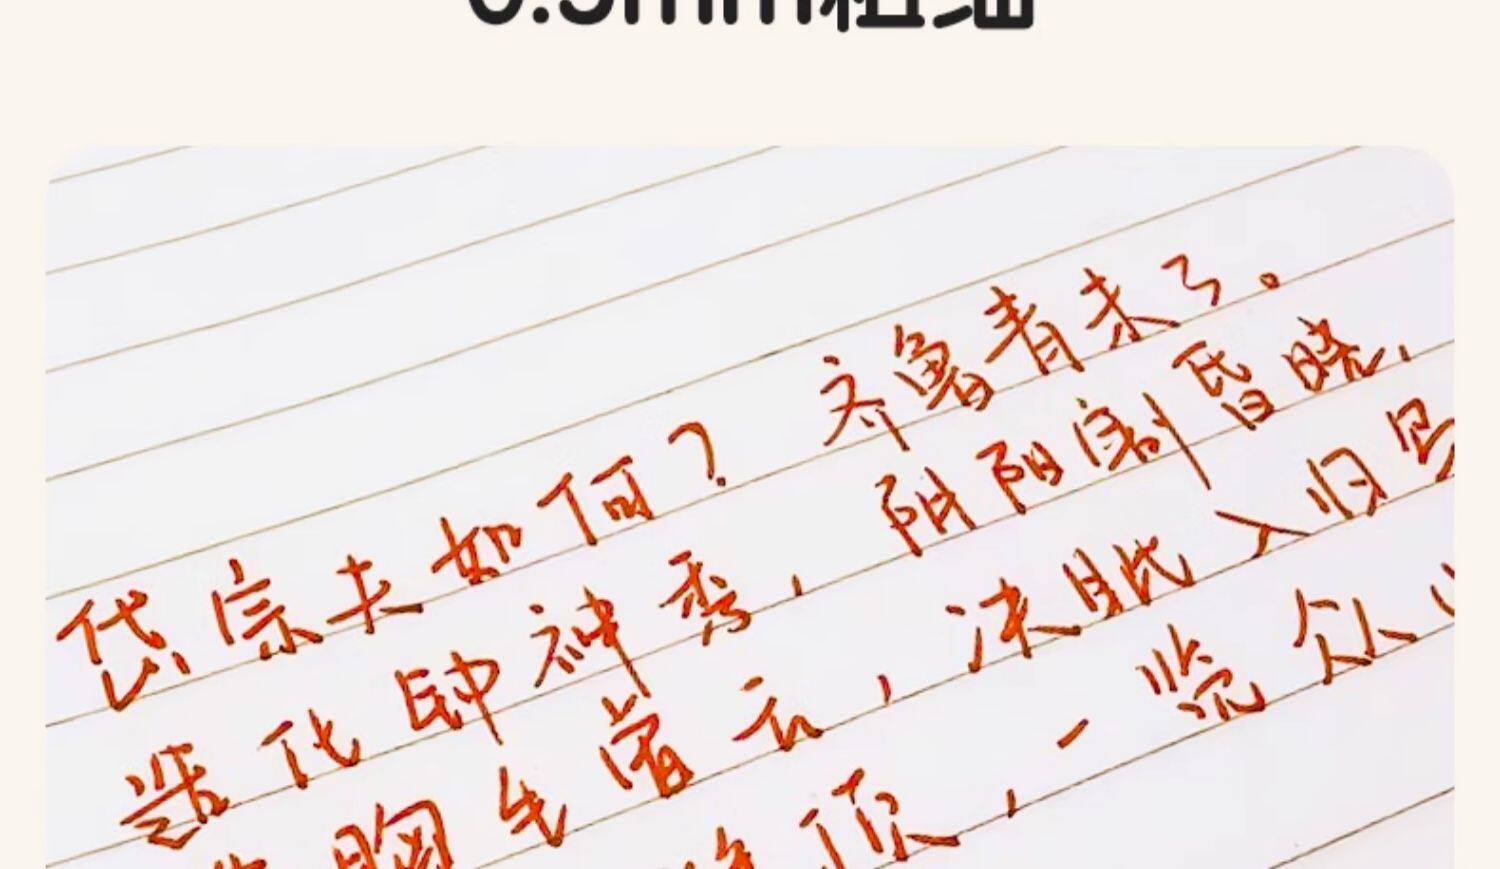 0.5mm粗细
岱宗夫如何？齐鲁青未了。
造化钟神秀，阴阳割昏晓，
荡胸生曾云，决眦入归鸟
凌绝顶，一览众山